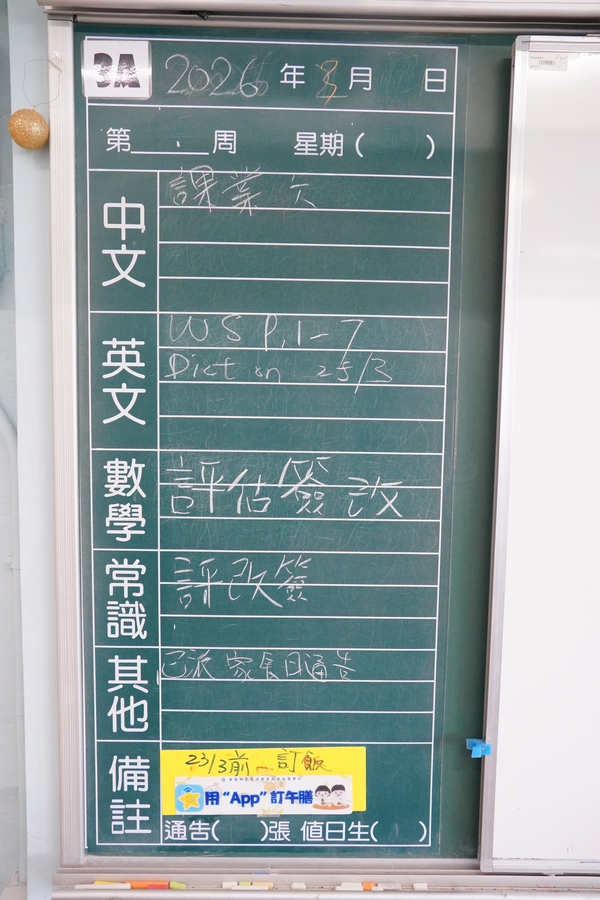 3A 2026年3月 日
第 周 星期( )
中文
課業 六
英文
WS P.1-7
Dict on 25/3
數學
評估簽改
常識
評改簽
其他
已派家長日通告
備註
23/3前 訂飯
用“App”訂午膳
通告( )張 值日生( )